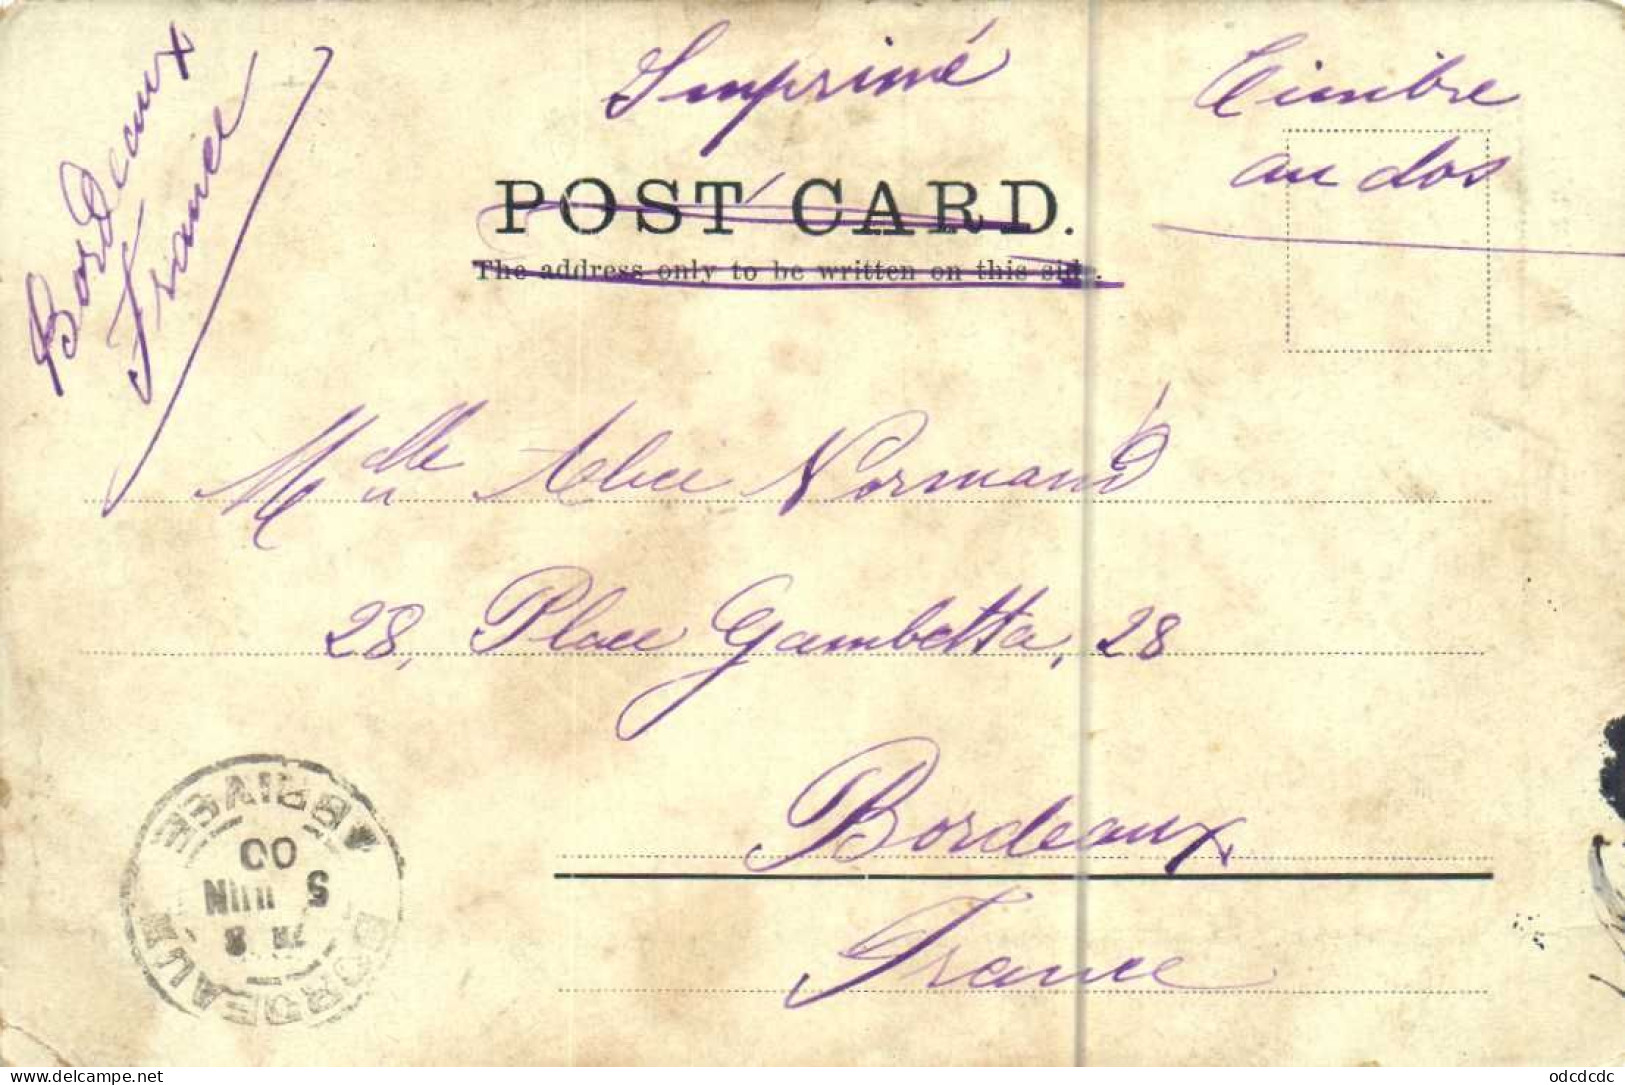 Bordeaux
France
Imprimé
Timbre
au dos
POST CARD.
The address only to be written on this side.
Mdelle Alice Normand
28, Place Gambetta, 28
Bordeaux
France
BORDEAUX
ARRIVEE
5 JUIN
00
delcampe.net
odcdcdc